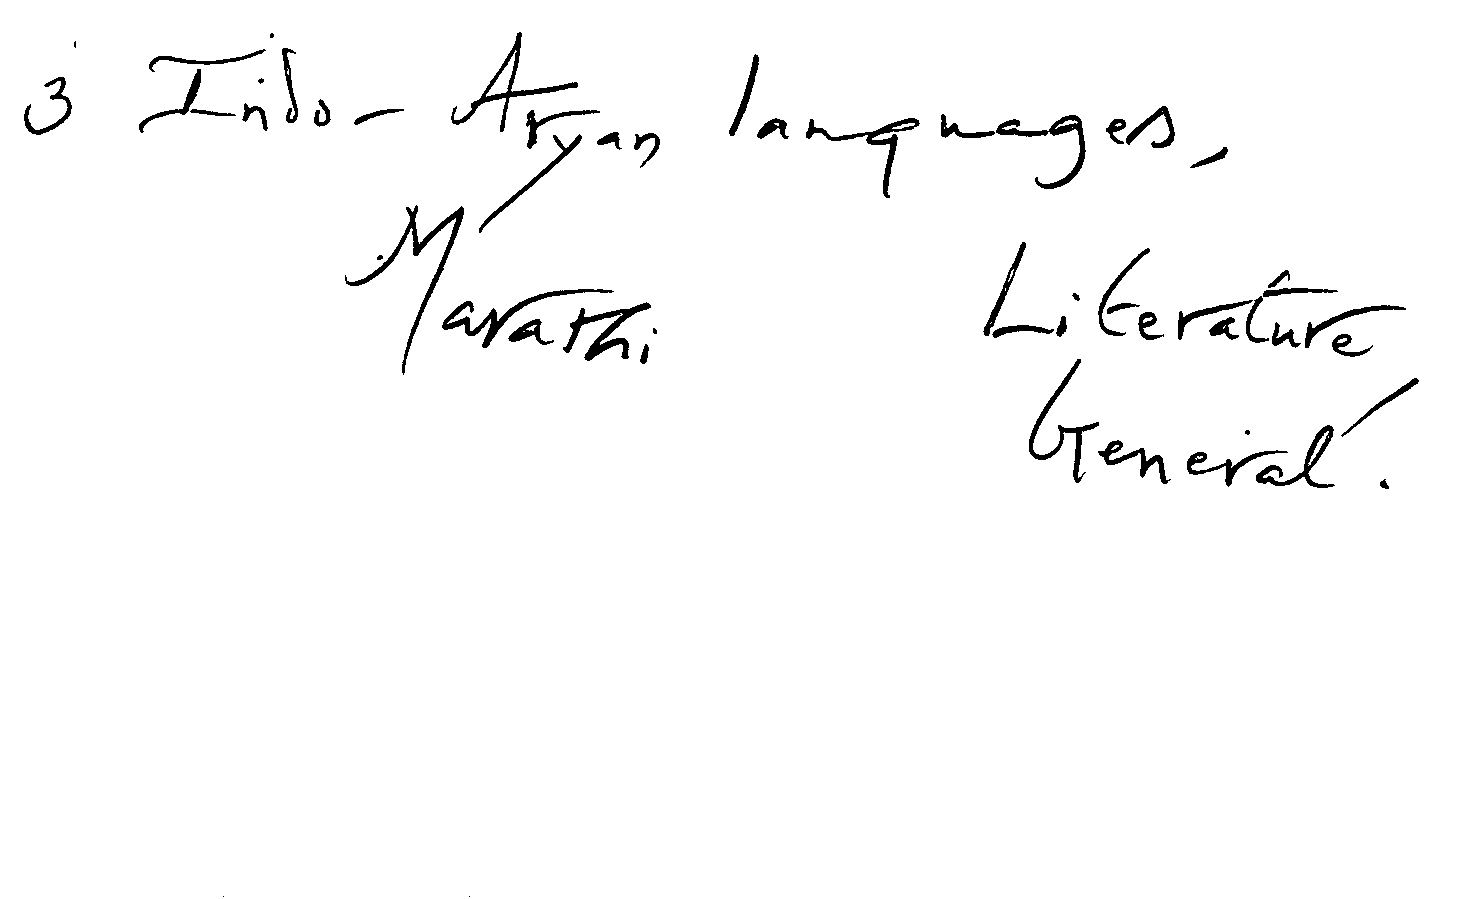 3 Indo-Aryan languages,
Marathi Literature
General.